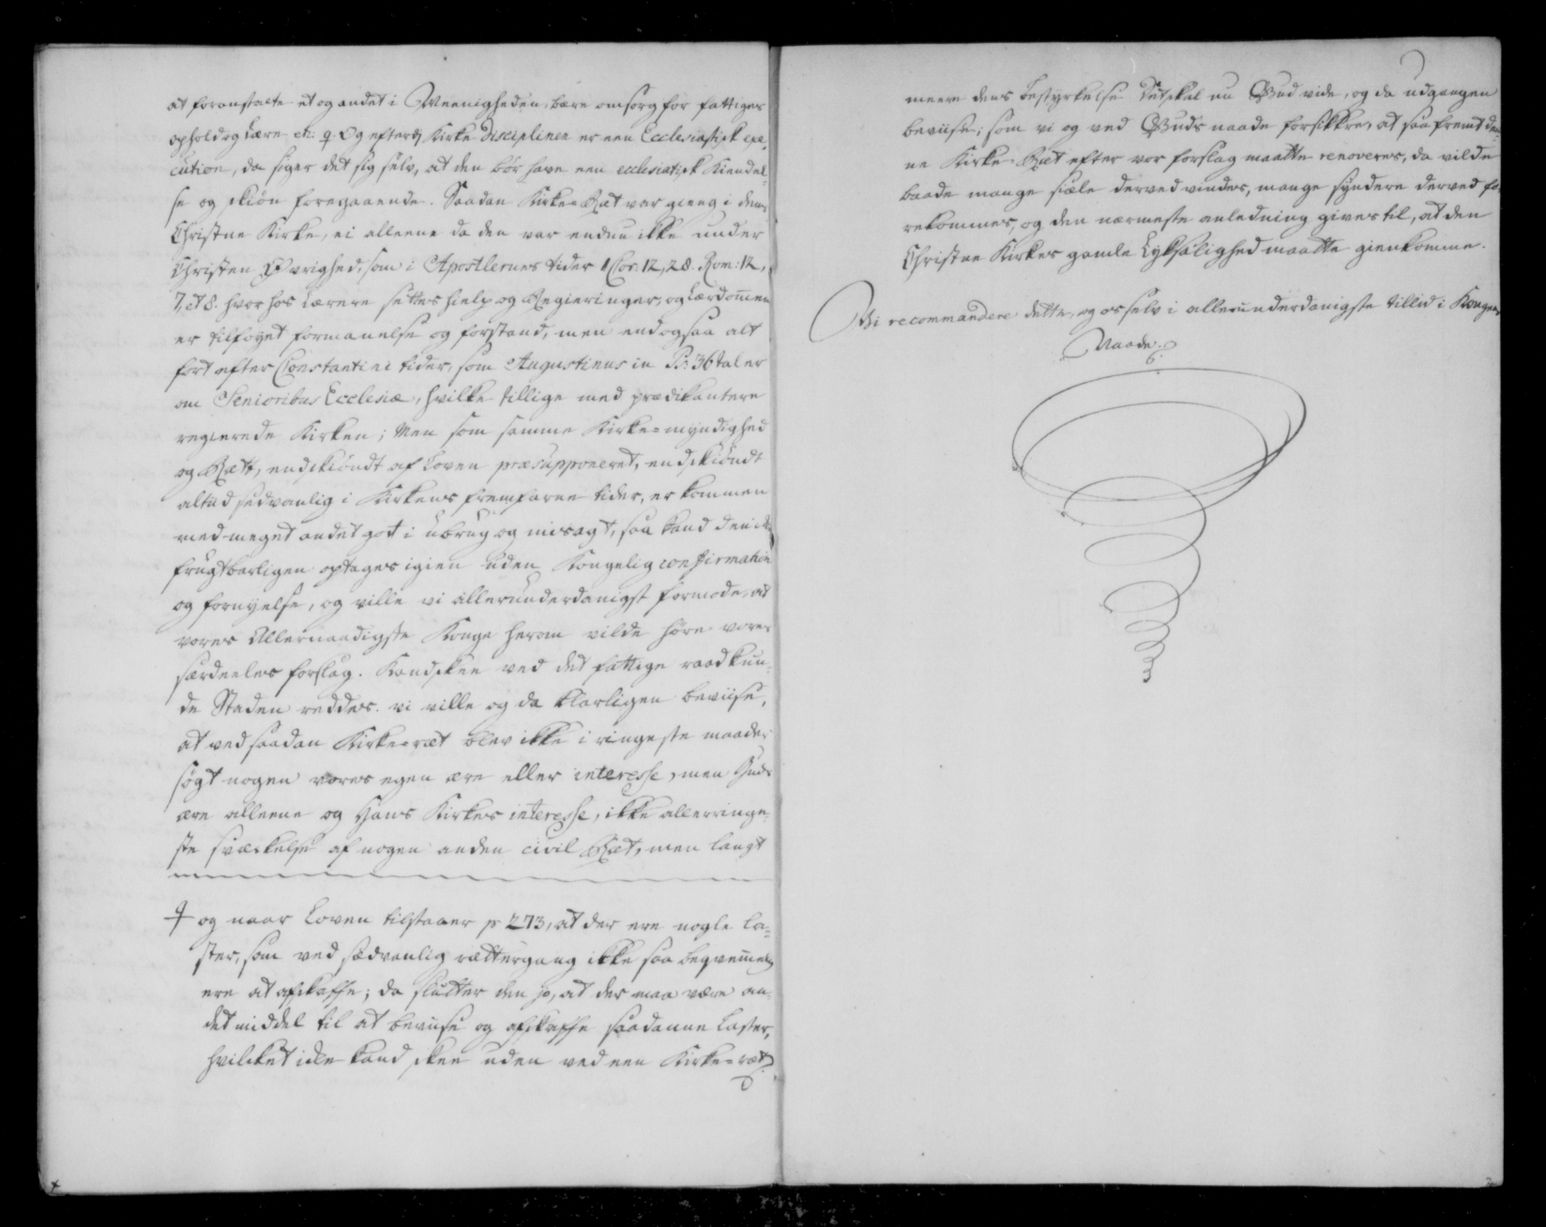 at foranstalte et og andet i Meenigheden, bære omsorg for fattiges
ophold og Lære etc: ♀ Og efterdj Kirke Disciplinen er een Ecclesiastisk exe,
cution, da siger det sig selv, at den bör have een ecclesiastisk Kiendel-
se og skiön foregaaende. Saadan Kirke-Ræt var gieng i den
Christne Kirke, ei alleene da den var endnu ikke under
Christen Øfvrighed, som i Apostlernes tider 1 Cor: 12, 28. Rom: 12,
7, et 8. hvor hos Lærere settes hielp og Regieringer, og Lærdomen
er tilföyet formanelse og forstand, men endogsaa alt
fort efter Constantini tider, som Augustinus in Ps: 36 taler
om Senioribus Ecclesiæ, hvilke tillige med prædikantere
regierede Kirken; Men som samme Kirke-myndighed
og Rætt, endskiöndt af Loven præsupponeret, endskiöndt
altid sedvanlig i Kirkens fremfarne tider, er kommen
med meget andet got i ubrug og misagt, saa kand den ikke
frugtbarligen optages igien uden Kongelig confirmation
og fornyelse, og ville vi allerunderdanigst formode, at
vores Allernaadigste Konge herom vilde höre vores
særdeeles forslag. Kandskee ved det fattige raad kun-
de Staden reddes. vi ville og da klarligen beviise,
at ved saadan Kirke-ræt blev ikke i ringeste maader
sögt nogen vores egen ære eller interesse, men Guds
ære alleene og Hans Kirkes interesse, ikke allerringe-
ste svækkelse af nogen anden civil Ræt, men langt
♀ og naar Loven tilstaaer p 273, at der ere nogle la-
ster, som ved sædvanlig rættergang ikke saa beqvemelig
ere at afskaffe; da slutter den jo, at der maa være an-
det middel til at beviise og afskaffe saadanne Laster,
hvilcket icke kand skee uden ved een Kirke-ræt.
meere dens bestyrkelse Det skal nu Gud vide, og da udgangen
beviise; som vi og ved Guds naade forsikkre, at saafremt den-
ne Kirke-Ræt efter vor forslag maatte renoveres, da vilde
baade mange siæle derved vindes, mange syndere derved fo-
rekommes, og den nærmeste anledning gives til, at den
Christne Kirkes gamle Lyksalighed maatte gienkomme.
Vi recommandere dette, og os selv i allerunderdanigste tillid i Kongens
Naade.